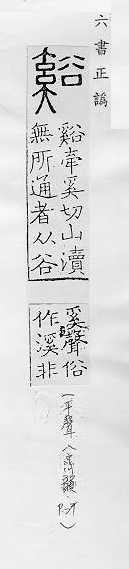 六書正譌
谿牽奚切山瀆
無所通者从谷
奚聲俗
作溪非
(平聲八